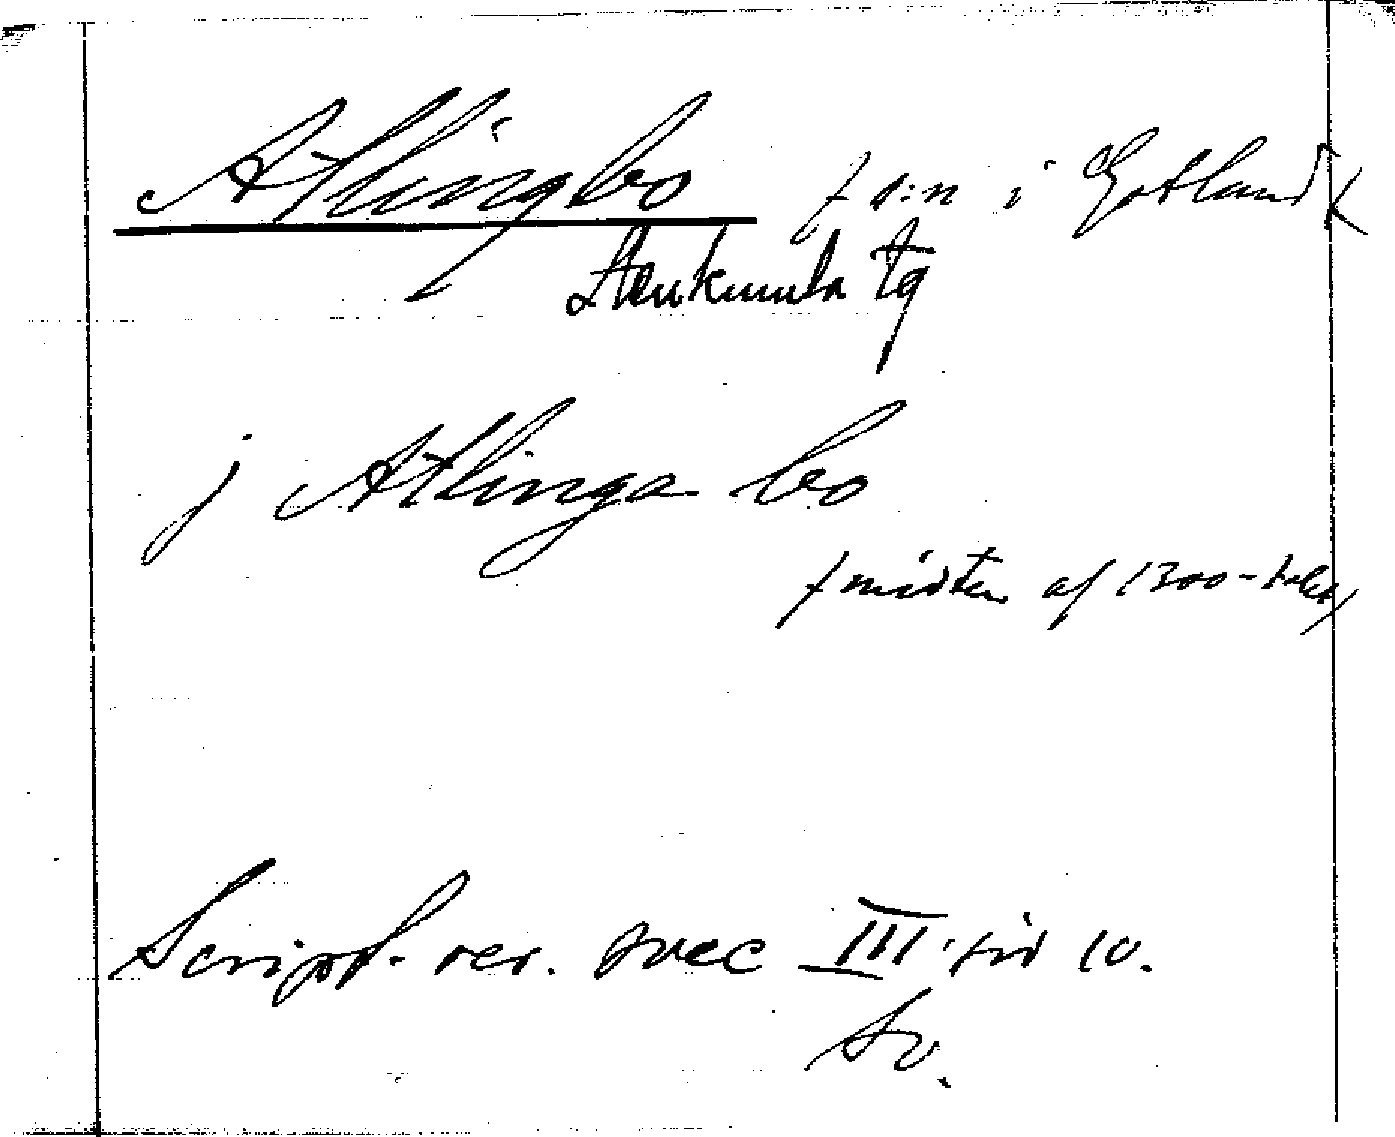 Atlingbo f s:n i Gotland
Stenkumla tg
j Atlinga bo
(midten af 1300-talet)
Script. rer. svec III. sid 10.
Sv.